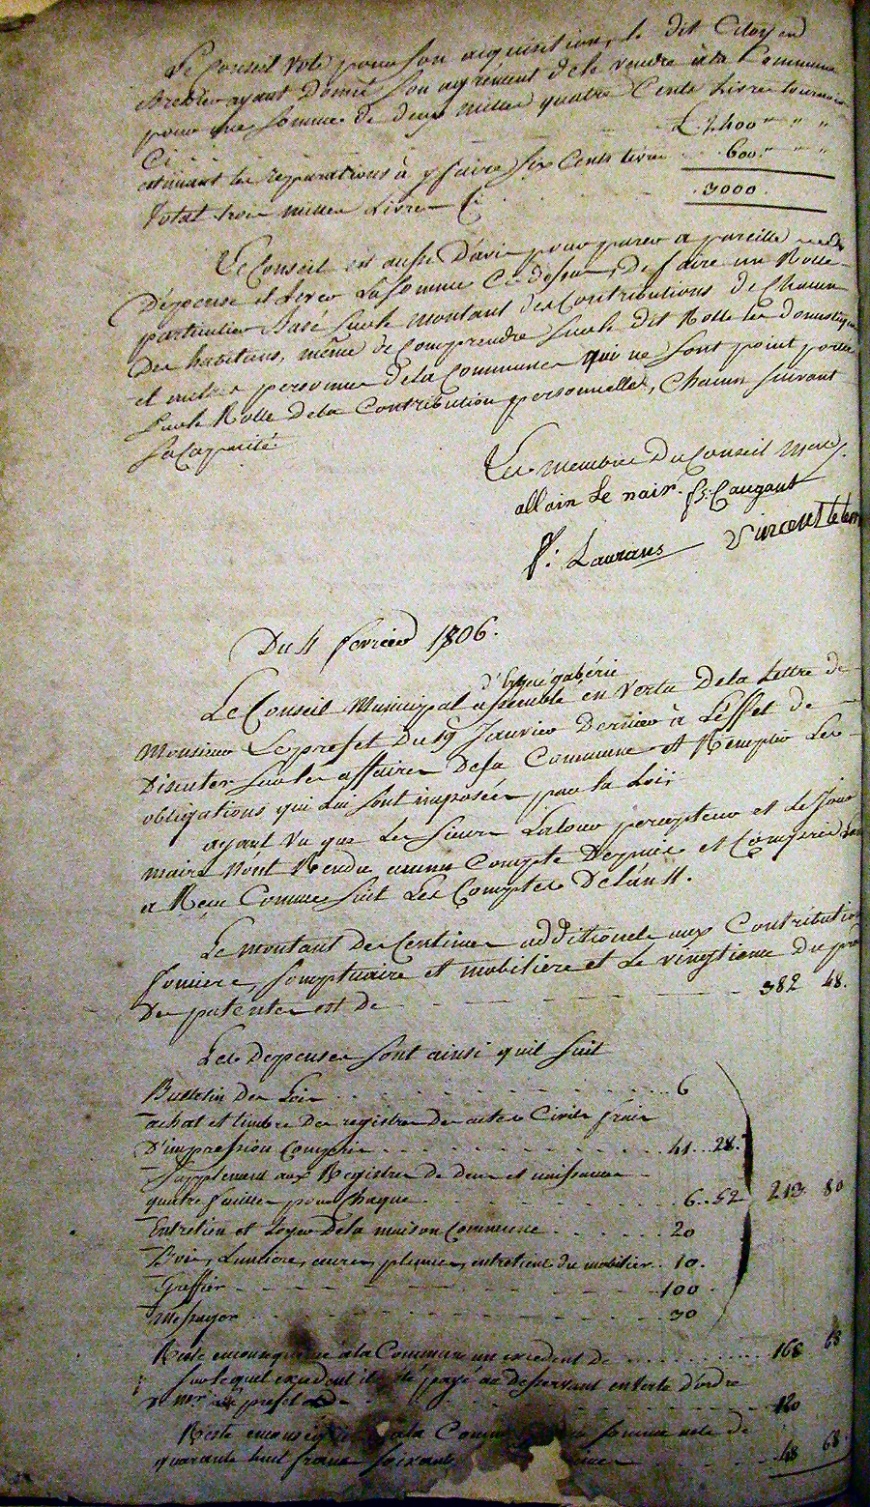 Le Conseil vote pour son acquisition, le dit Citoyen
ayant Donné son agrément de le vendre à la Commune
pour une somme de deux mille quatre Cents Livres tournois
Ci . . . £ 2400 " " "
estimant les reparations à y faire six Cents livres 600 " " "
Total trois mille Livres Ci . . . 3000
Le Conseil est aussi D'avis pour parer a pareille
Dépense et lever La Somme Ci dessus, de faire un Rolle
particulier Basé sur le montant des Contributions de Chacun
Des habitans, même de Comprendre sur le dit Rolle les domestiques
et autres personnes de la Commune qui ne sont point portés
sur le Rolle de la Contribution personnelle, Chacun suivant
sa Capacité
Les membres Du Conseil
allain Le nair. Caugant
Laurans Vincent
Du 4 fevrier 1806.
d'Ergué gabéric
Le Conseil Municipal assemblé en Vertu De la Lettre de
Monsieur Le prefet Du 19 Janvier Dernier à L'éffet de
Discuter sur les affaires De sa Commune et Remplir Les
obligations qui lui sont imposées par la Loi;
ayant Vu que Les sieurs Latour percepteur et Le Jour
maire N'ont Rendu aucun Compte Depuis et Compris
a Reçu Comme suit Les Comptes De l'an 11.
Le montant Des Centimes additionels aux Contributions
fonciere, somptuaire et mobilière et Le vingtieme Du
Des patentes est de 382 48.
Les Depenses sont ainsi qu'il suit
Bulletin Des Loix . . . 6
achat et timbre Des registres Des actes Civils frais
D'impression Compris . . . 41 . 28.
Supplement aux Registres De deces et naissances
quatre feuilles pour Chaque . . . 6 . . 52 213 80
Entretien et Loyer De la maison Commune . . . 20
Bois, Lumiere, encre, plumes, entretient du mobilier . . 10.
Greffier . . . 100
Messager . . . 30
Reste en consequence à la Commune un excedent de . . . 168 68
Sur lequel excedent il a été payé au Desservant en Vertu D'ordre
De Mr le prefet . . . 120
Reste en consequence à la somme de
quarante huit francs soixante . . . 48 68.